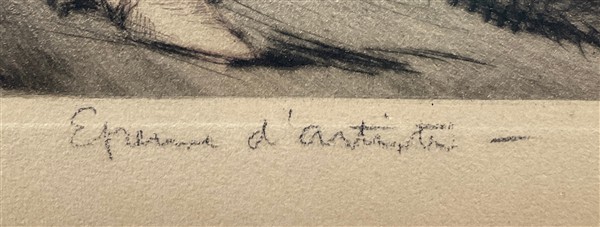 Epreuve d'artiste —